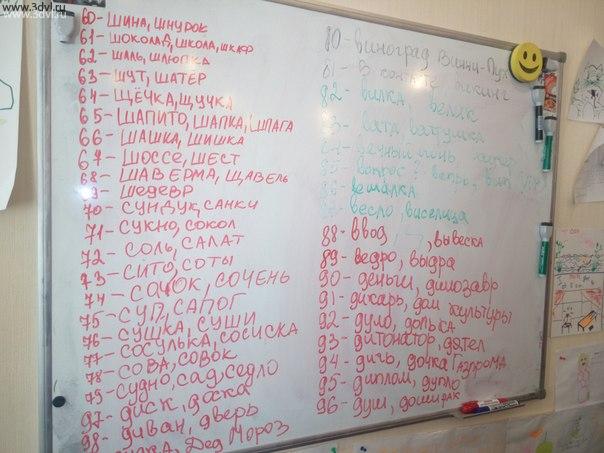 www.3dvl.ru
60- ШИНА, ШНУРОК
61 ШОКОЛАД, ШКОЛА, ШКАФ
62 - ШАЛЬ, ШЛЮПКА
63 - ШУТ, ШАТЁР
64 - ЩЁЧКА, ЩУЧКА
65 - ШАПИТО, ШАПКА, ШПАГА
66 - ШАШКА, ШИШКА
67 - ШОССЕ, ШЕСТ
68 - ШАВЕРМА, ЩАВЕЛЬ
69 - ШЕДЕВР
70 - СУНДУК, САНКИ
71 - СУКНО, СОКОЛ
72 - СОЛЬ, САЛАТ
73 - СИТО, СОТЫ
74 - САЧОК, СОЧЕНЬ
75 - СУП, САПОГ
76 - СУШКА, СУШИ
77 - СОСУЛЬКА, СОСИСКА
78 - СОВА, СОВОК
79 - СУДНО, САД, СЕДЛО
97 - ДИСК, ДОСКА
98 - ДИВАН, ДВЕРЬ
Дед Мороз
80 - виноград Винни-Пух
81 - В контакте викинг
82 - вилка, велик
83 - вата, ватрушка
84 - вечный
85 - вопрос
86 - вешалка
87 - весло, виселица
88 - ввод, вывеска
89 - ведро, выдра
90 - деньги, динозавр
91 - дикарь, дом культуры
92 - дуло, долька
93 - дитонатор, дятел
94 - дичь, дочка Газпрома
95 - диплом, дупло
96 - душ, доширак